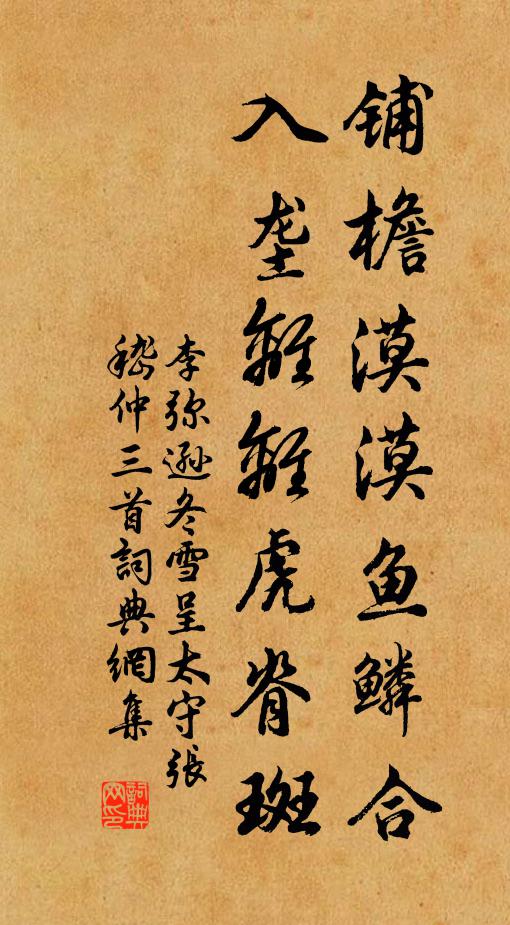 铺檐漠漠鱼鳞合
入垄离离虎脊斑
李弥逊冬雪呈太守張
嵇仲三首詞典網集
詞典网印